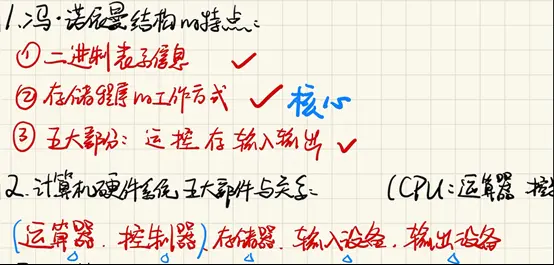 1.冯·诺依曼结构的特点:
① 二进制表示信息 ✓
② 存储程序的工作方式 ✓ 核心
③ 五大部分: 运 控 存 输入 输出 ✓
2.计算机硬件系统五大部件与关系: (CPU:运算器 控
(运算器.控制器).存储器.输入设备.输出设备